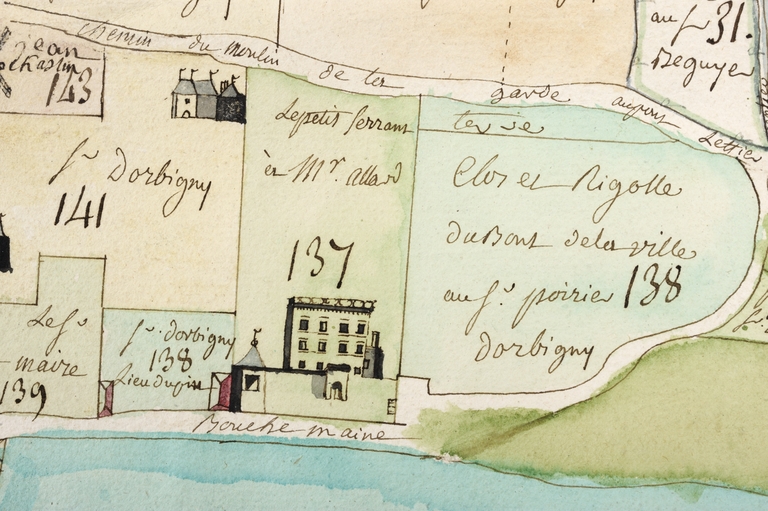 chemin du moulin de ter garde
au Sr 31.
Beguyer
jean
143
Sr Dorbigny
141
Le petit serrant
et Mr. allard
137
terre
Clos et Rigolle
du Bout de la ville
au Sr. poirier 138
Dorbigny
Le Sr
maire
139
Sr. dorbigny
138
Lieu du pin
Bouche maine